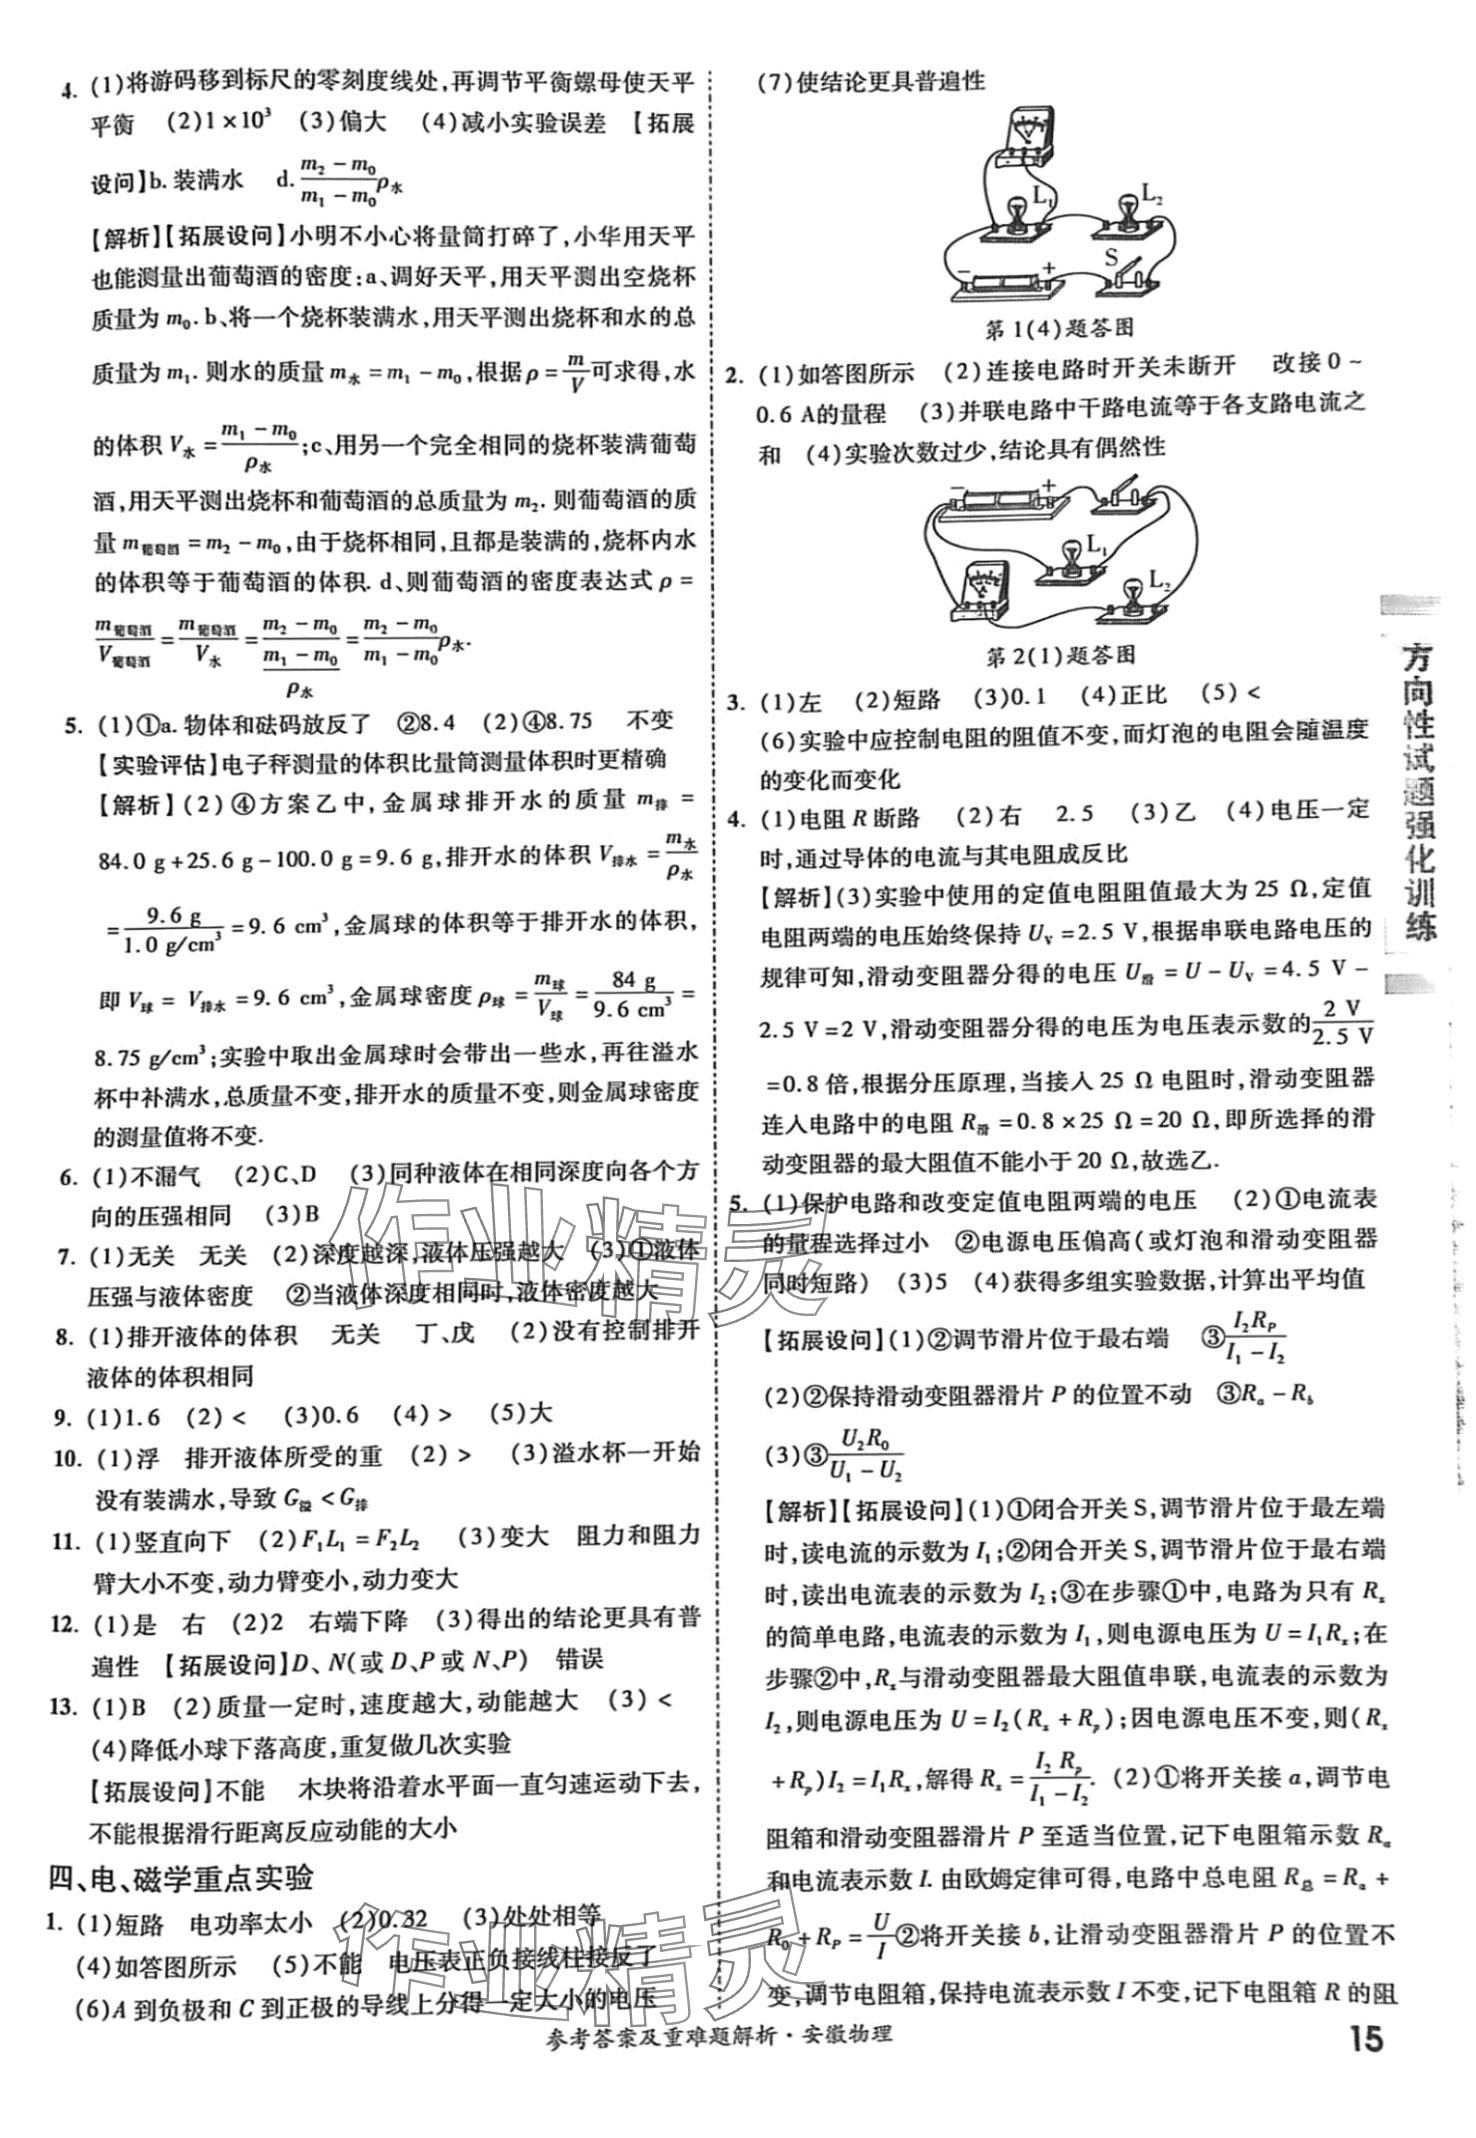 4. (1)将游码移到标尺的零刻度线处,再调节平衡螺母使天平
平衡 (2)1×10³ (3)偏大 (4)减小实验误差 【拓展
设问】b.装满水 d.(m₂-m₀)/(m₁-m₀)ρ水
【解析】【拓展设问】小明不小心将量筒打碎了,小华用天平
也能测量出葡萄酒的密度:a、调好天平,用天平测出空烧杯
质量为 m₀.b、将一个烧杯装满水,用天平测出烧杯和水的总
质量为 m₁.则水的质量 m水=m₁-m₀,根据ρ=m/V可求得,水
的体积 V水=(m₁-m₀)/ρ水;c、用另一个完全相同的烧杯装满葡萄
酒,用天平测出烧杯和葡萄酒的总质量为 m₂.则葡萄酒的质
量 m葡萄酒=m₂-m₀,由于烧杯相同,且都是装满的,烧杯内水
的体积等于葡萄酒的体积.d、则葡萄酒的密度表达式ρ=
m葡萄酒/V葡萄酒=m葡萄酒/V水=(m₂-m₀)/((m₁-m₀)/ρ水)=(m₂-m₀)/(m₁-m₀)ρ水.
5. (1)①a.物体和砝码放反了 ②8.4 (2)④8.75 不变
【实验评估】电子秤测量的体积比量筒测量体积时更精确
【解析】(2)④方案乙中,金属球排开水的质量 m排=
84.0 g+25.6 g-100.0 g=9.6 g,排开水的体积 V排水=m水/ρ水
=9.6 g/(1.0 g/cm³)=9.6 cm³,金属球的体积等于排开水的体积,
即 V球=V排水=9.6 cm³,金属球密度ρ球=m球/V球=84 g/9.6 cm³=
8.75 g/cm³;实验中取出金属球时会带出一些水,再往溢水
杯中补满水,总质量不变,排开水的质量不变,则金属球密度
的测量值将不变.
6. (1)不漏气 (2)C、D (3)同种液体在相同深度向各个方
向的压强相同 (3)B
7. (1)无关 无关 (2)深度越深,液体压强越大 (3)①液体
压强与液体密度 ②当液体深度相同时,液体密度越大
8. (1)排开液体的体积 无关 丁、戊 (2)没有控制排开
液体的体积相同
9. (1)1.6 (2)< (3)0.6 (4)> (5)大
10. (1)浮 排开液体所受的重 (2)> (3)溢水杯一开始
没有装满水,导致 G溢<G排
11. (1)竖直向下 (2)F₁L₁=F₂L₂ (3)变大 阻力和阻力
臂大小不变,动力臂变小,动力变大
12. (1)是 右 (2)2 右端下降 (3)得出的结论更具有普
遍性 【拓展设问】D、N(或 D、P 或 N、P) 错误
13. (1)B (2)质量一定时,速度越大,动能越大 (3)<
(4)降低小球下落高度,重复做几次实验
【拓展设问】不能 木块将沿着水平面一直匀速运动下去,
不能根据滑行距离反应动能的大小
四、电、磁学重点实验
1. (1)短路 电功率太小 (2)0.32 (3)处处相等
(4)如答图所示 (5)不能 电压表正负接线柱接反了
(6)A 到负极和 C 到正极的导线上分得一定大小的电压
(7)使结论更具普遍性
L₁ L₂
S
- +
第 1(4)题答图
2. (1)如答图所示 (2)连接电路时开关未断开 改接 0~
0.6 A的量程 (3)并联电路中干路电流等于各支路电流之
和 (4)实验次数过少,结论具有偶然性
- +
L₁
L₂
第 2(1)题答图
3. (1)左 (2)短路 (3)0.1 (4)正比 (5)<
(6)实验中应控制电阻的阻值不变,而灯泡的电阻会随温度
的变化而变化
4. (1)电阻 R 断路 (2)右 2.5 (3)乙 (4)电压一定
时,通过导体的电流与其电阻成反比
【解析】(3)实验中使用的定值电阻阻值最大为 25 Ω,定值
电阻两端的电压始终保持 Uv=2.5 V,根据串联电路电压的
规律可知,滑动变阻器分得的电压 U滑=U-Uv=4.5 V-
2.5 V=2 V,滑动变阻器分得的电压为电压表示数的2 V/2.5 V
=0.8 倍,根据分压原理,当接入 25 Ω 电阻时,滑动变阻器
连入电路中的电阻 R滑=0.8×25 Ω=20 Ω,即所选择的滑
动变阻器的最大阻值不能小于 20 Ω,故选乙.
5. (1)保护电路和改变定值电阻两端的电压 (2)①电流表
的量程选择过小 ②电源电压偏高(或灯泡和滑动变阻器
同时短路) (3)5 (4)获得多组实验数据,计算出平均值
【拓展设问】(1)②调节滑片位于最右端 ③I₂Rp/(I₁-I₂)
(2)②保持滑动变阻器滑片 P 的位置不动 ③Ra-Rb
(3)③U₂R₀/(U₁-U₂)
【解析】【拓展设问】(1)①闭合开关 S,调节滑片位于最左端
时,读电流的示数为 I₁;②闭合开关 S,调节滑片位于最右端
时,读出电流表的示数为 I₂;③在步骤①中,电路为只有 Rx
的简单电路,电流表的示数为 I₁,则电源电压为 U=I₁Rx;在
步骤②中,Rx与滑动变阻器最大阻值串联,电流表的示数为
I₂,则电源电压为 U=I₂(Rx+Rp);因电源电压不变,则(Rx
+Rp)I₂=I₁Rx,解得 Rx=I₂Rp/(I₁-I₂).(2)①将开关接 a,调节电
阻箱和滑动变阻器滑片 P 至适当位置,记下电阻箱示数 Ra
和电流表示数 I.由欧姆定律可得,电路中总电阻 R总=Ra+
R₀+RP=U/I②将开关接 b,让滑动变阻器滑片 P 的位置不
变,调节电阻箱,保持电流表示数 I 不变,记下电阻箱 R 的阻
方向性试题强化训练
作业精灵
作业精灵
参考答案及重难题解析·安徽物理
15